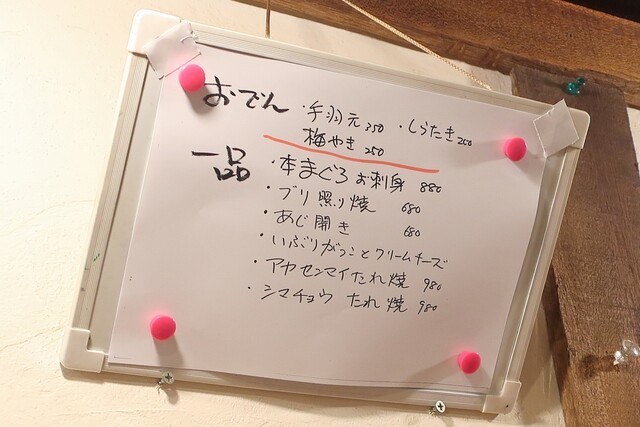 おでん ・手羽元 350 ・しらたき 250
梅やき 250
一品 ・本まぐろお刺身 880
・ブリ照り焼 680
・あじ開き 680
・いぶりがっことクリームチーズ
・アカセンマイたれ焼 980
・シマチョウ たれ焼 980